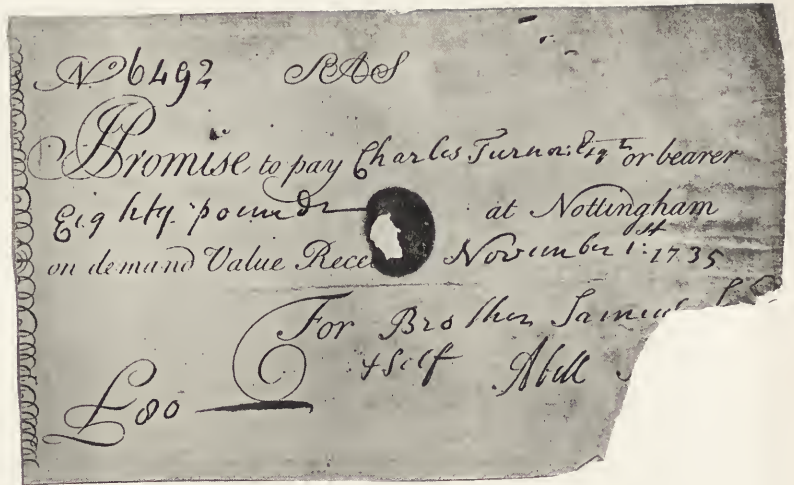 No 6492 SAS
I Promise to pay Charles Turnor Esqr or bearer
Eighty pounds at Nottingham
on demand Value Rece November 1st 1735
For Brother Samuel
& Self Abell
£80